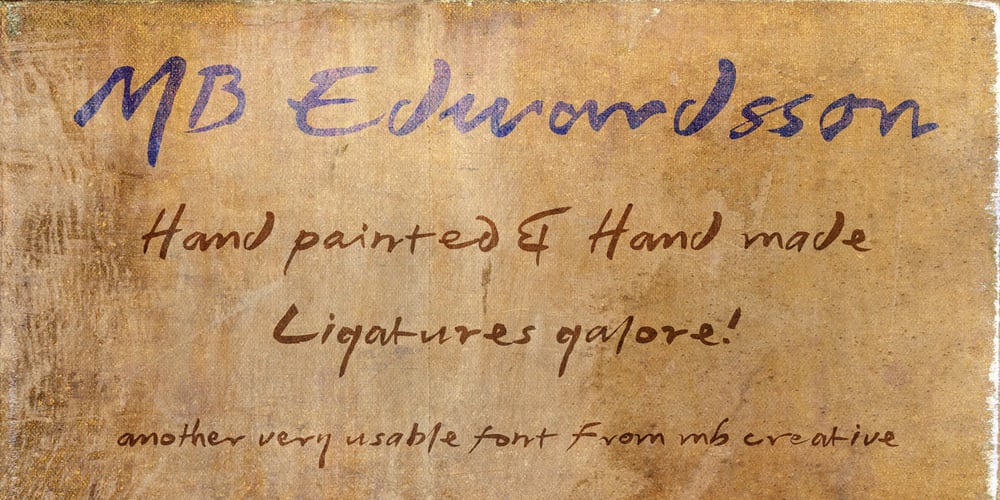 MB Edwardsson
Hand painted & Hand made
Ligatures galore!
another very usable font from mb creative